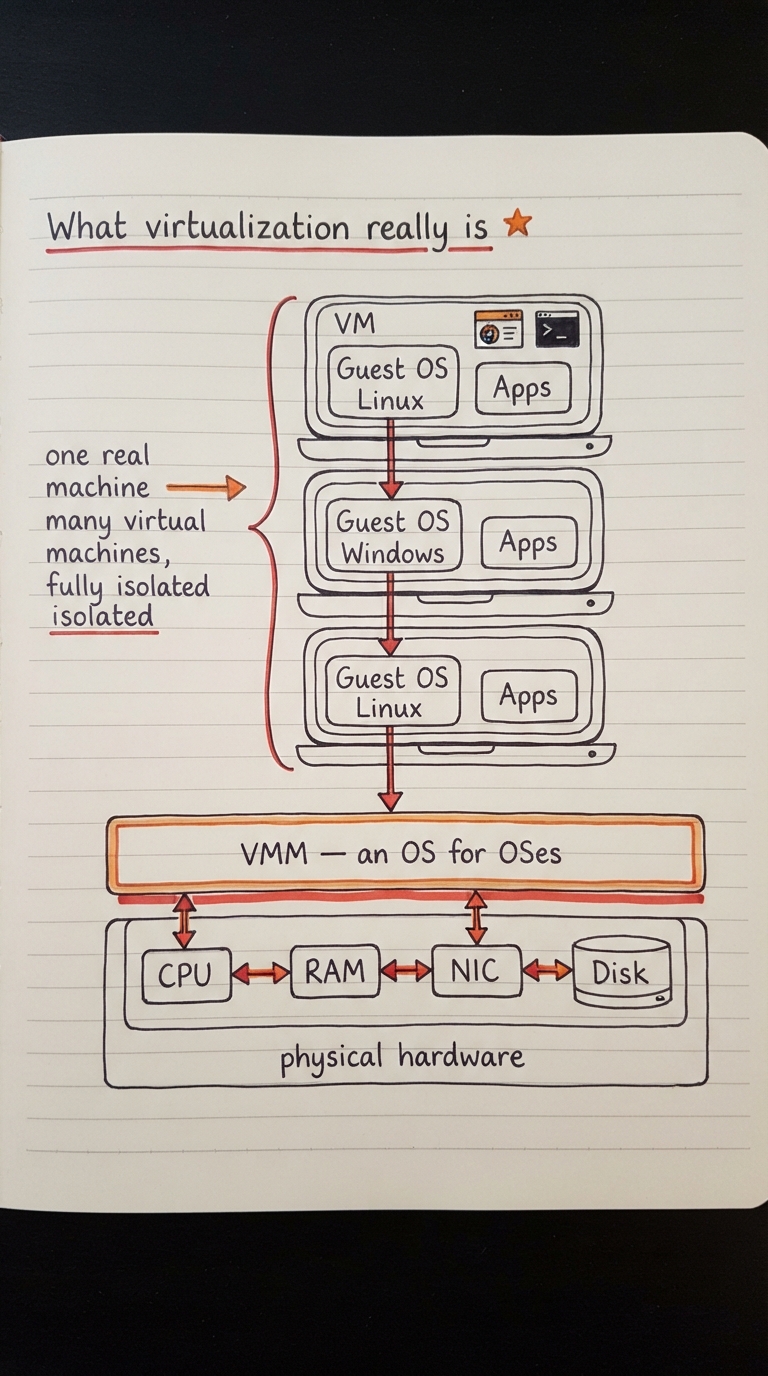 What virtualization really is
VM
Guest OS
Linux
Apps
one real
machine
many virtual
machines,
fully isolated
isolated
Guest OS
Windows
Apps
Guest OS
Linux
Apps
VMM — an OS for OSes
CPU
RAM
NIC
Disk
physical hardware